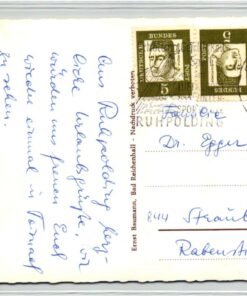 Aus Ruhpolding herz-
liche Urlaubsgrüße, wir
würden uns freuen Euch
wieder einmal in
zu sehen.
Ernst Baumann, Bad Reichenhall - Nachdruck verboten
DEUTSCHE BUNDESPOST
5
5
DEUTSCHE BUNDESPOST
RUHPOLDING
Familie
Dr. Egger
844 Straub
Rabenst